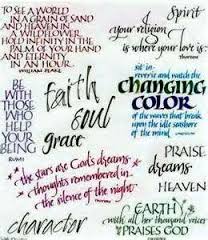 TO SEE A WORLD
IN A GRAIN OF SAND
AND HEAVEN IN
A WILDFLOWER
HOLD INFINITY IN THE
PALM OF YOUR HAND
AND ETERNITY
IN AN HOUR.
WILLIAM BLAKE
Spirit
your religion
is where your love is:
Thoreau
BE
WITH
THOSE
WHO
HELP
YOUR
BEING
RUMI
faith
soul
grace
sit in
reverie and watch the
CHANGING
COLOR
of the waves that break
upon the idle seashore
of the mind
the stars are God's dreams
thoughts remembered in
the silence of the night
PRAISE
dreams
HEAVEN
character
EARTH
with all her thousand voices
PRAISES GOD